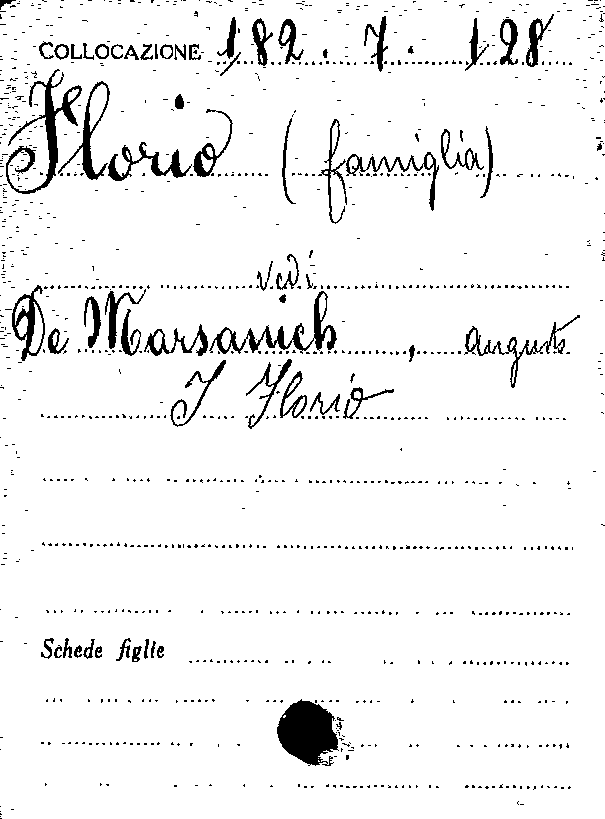 COLLOCAZIONE 182.7.128
Florio (famiglia)
vedi
De Marsanich, Augusto
I Florio
Schede figlie